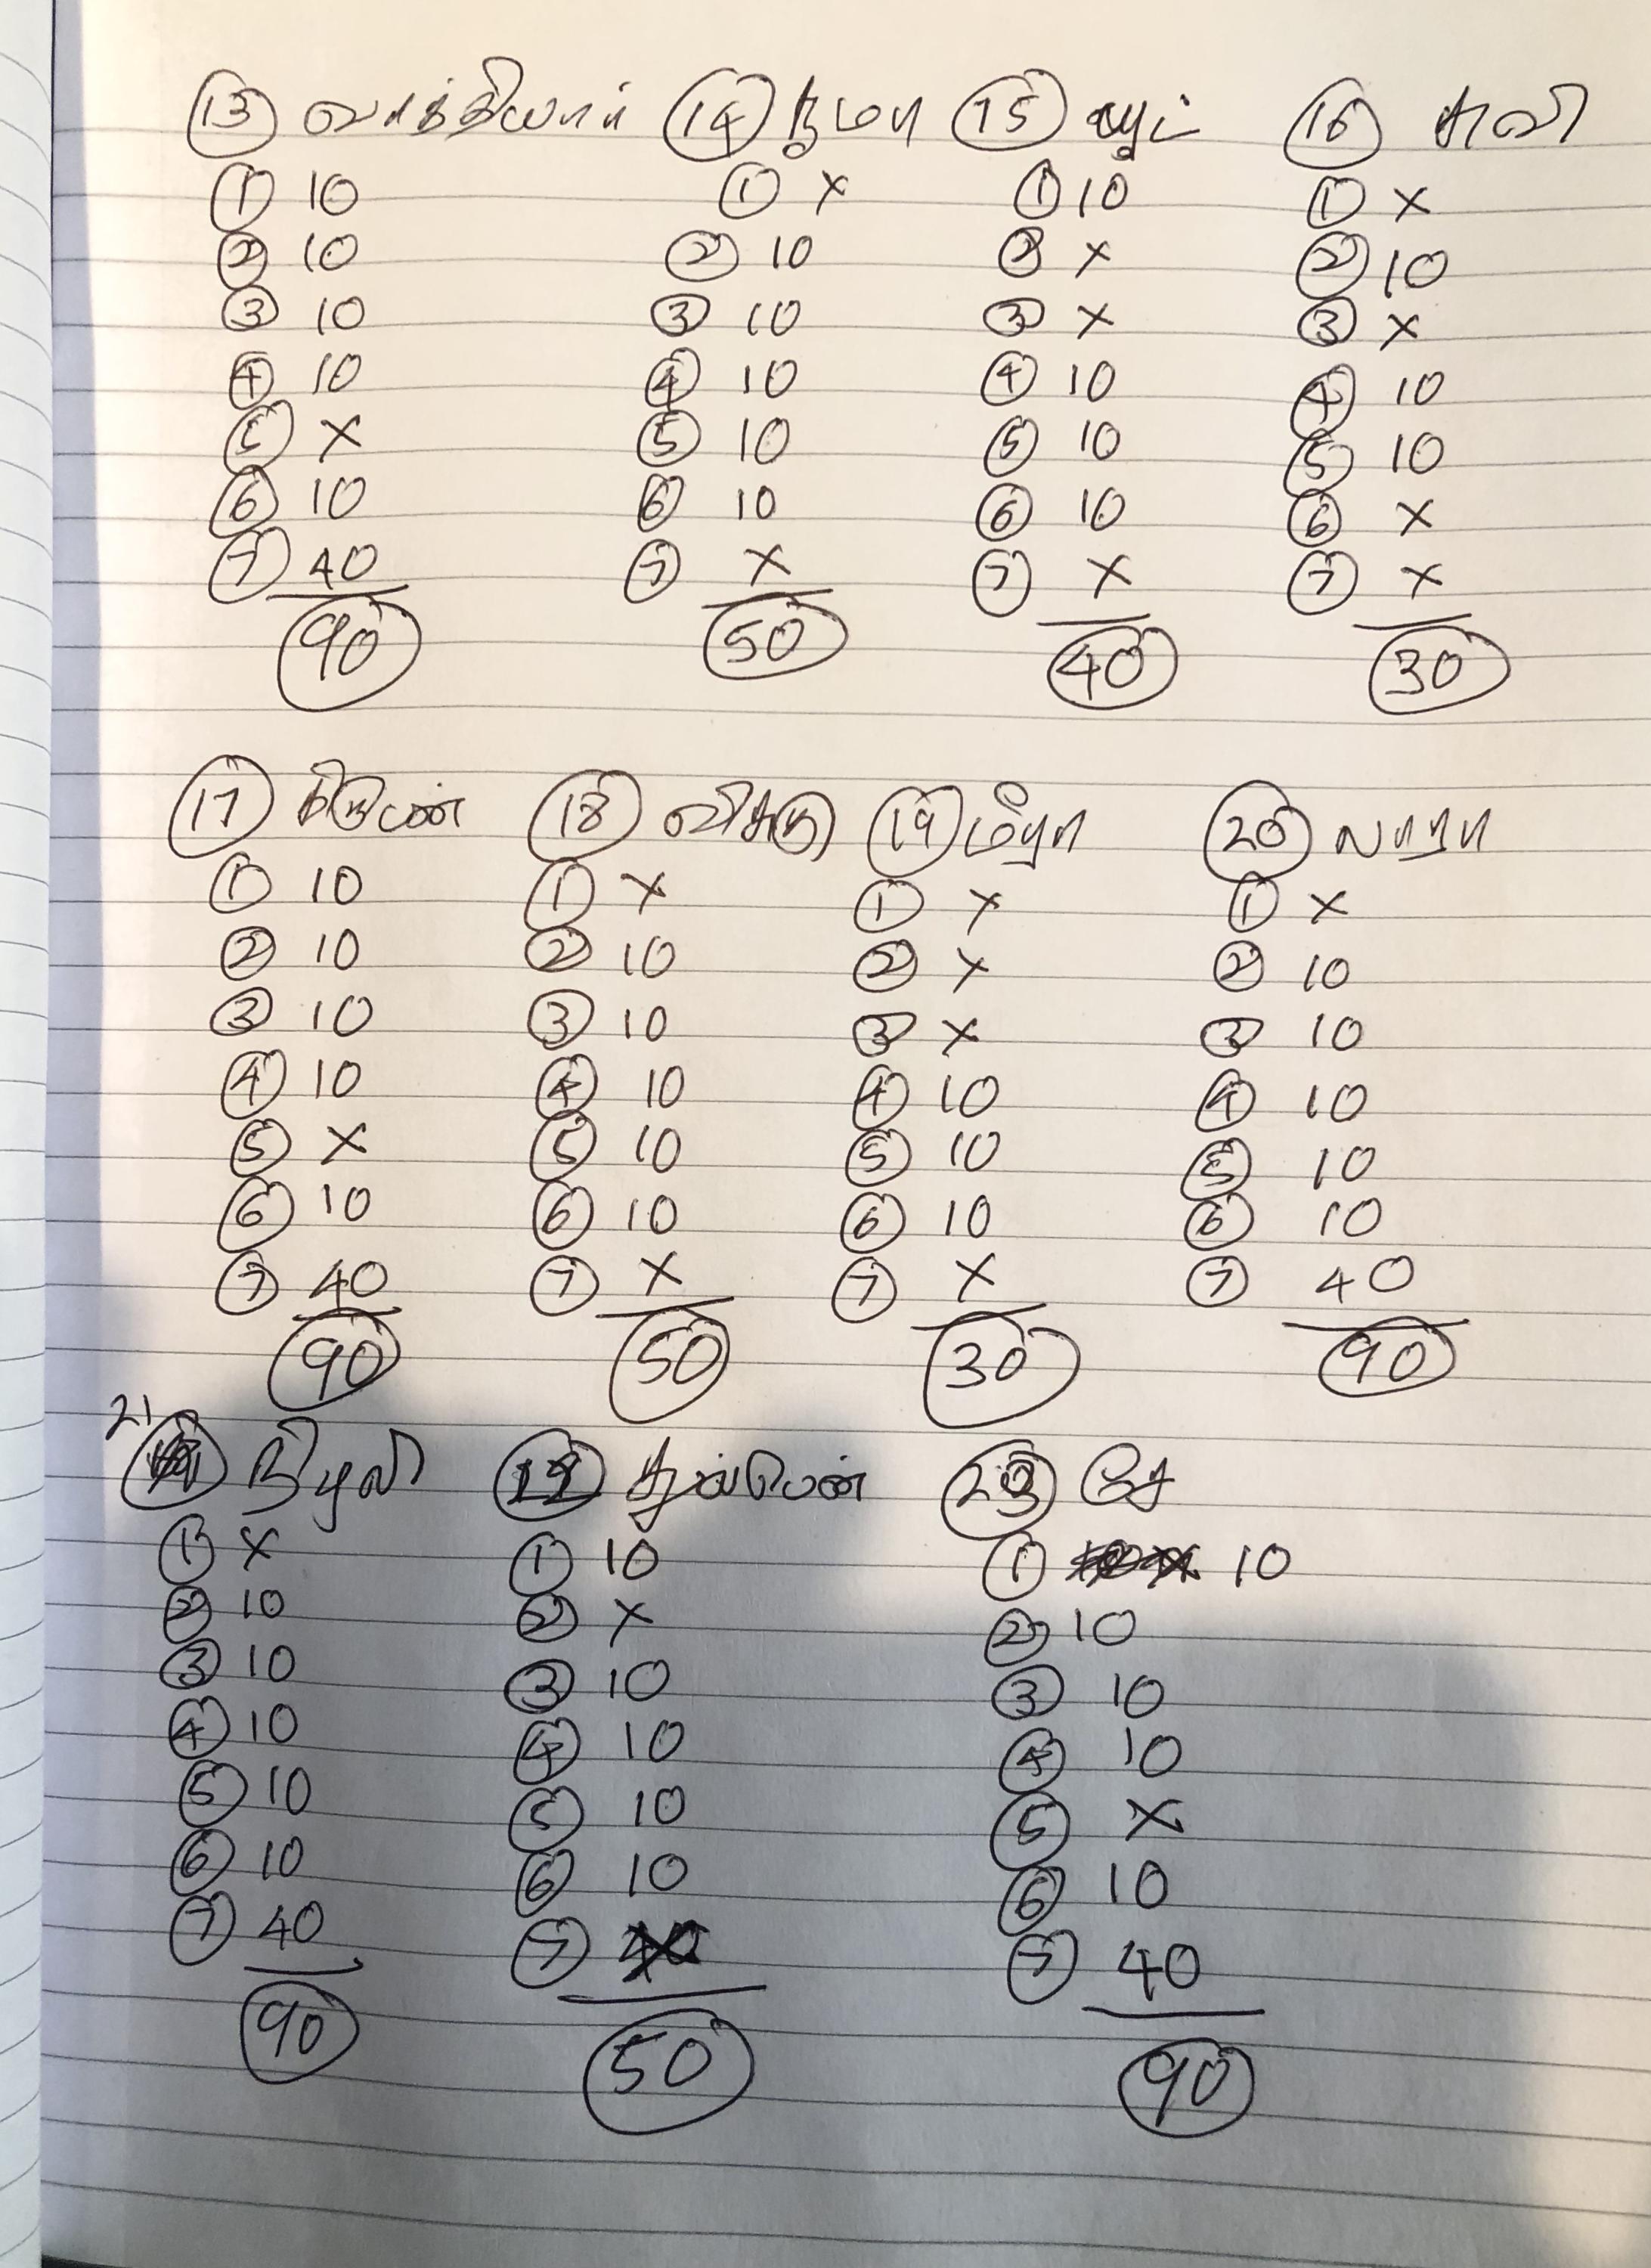 13 வாத்தியார் 14 குமா 15 14 16 கவி
1 10 1 x 1 10 1 x
2 10 2 10 2 x 2 10
3 10 3 10 3 x 3 x
4 10 4 10 4 10 4 10
5 x 5 10 5 10 5 10
6 10 6 10 6 10 6 x
7 40 7 x 7 x 7 x
90 50 40 30
17 18 விசு 19 மீரா 20 லாரா
1 10 1 x 1 x 1 x
2 10 2 10 2 x 2 10
3 10 3 10 3 x 3 10
4 10 4 10 4 10 4 10
5 x 5 10 5 10 5 10
6 10 6 10 6 10 6 10
7 40 7 x 7 x 7 40
90 50 30 90
21 22 23 சே
1 x 1 10 1 10
2 10 2 x 2 10
3 10 3 10 3 10
4 10 4 10 4 10
5 10 5 10 5 x
6 10 6 10 6 10
7 40 7 x 7 40
90 50 90